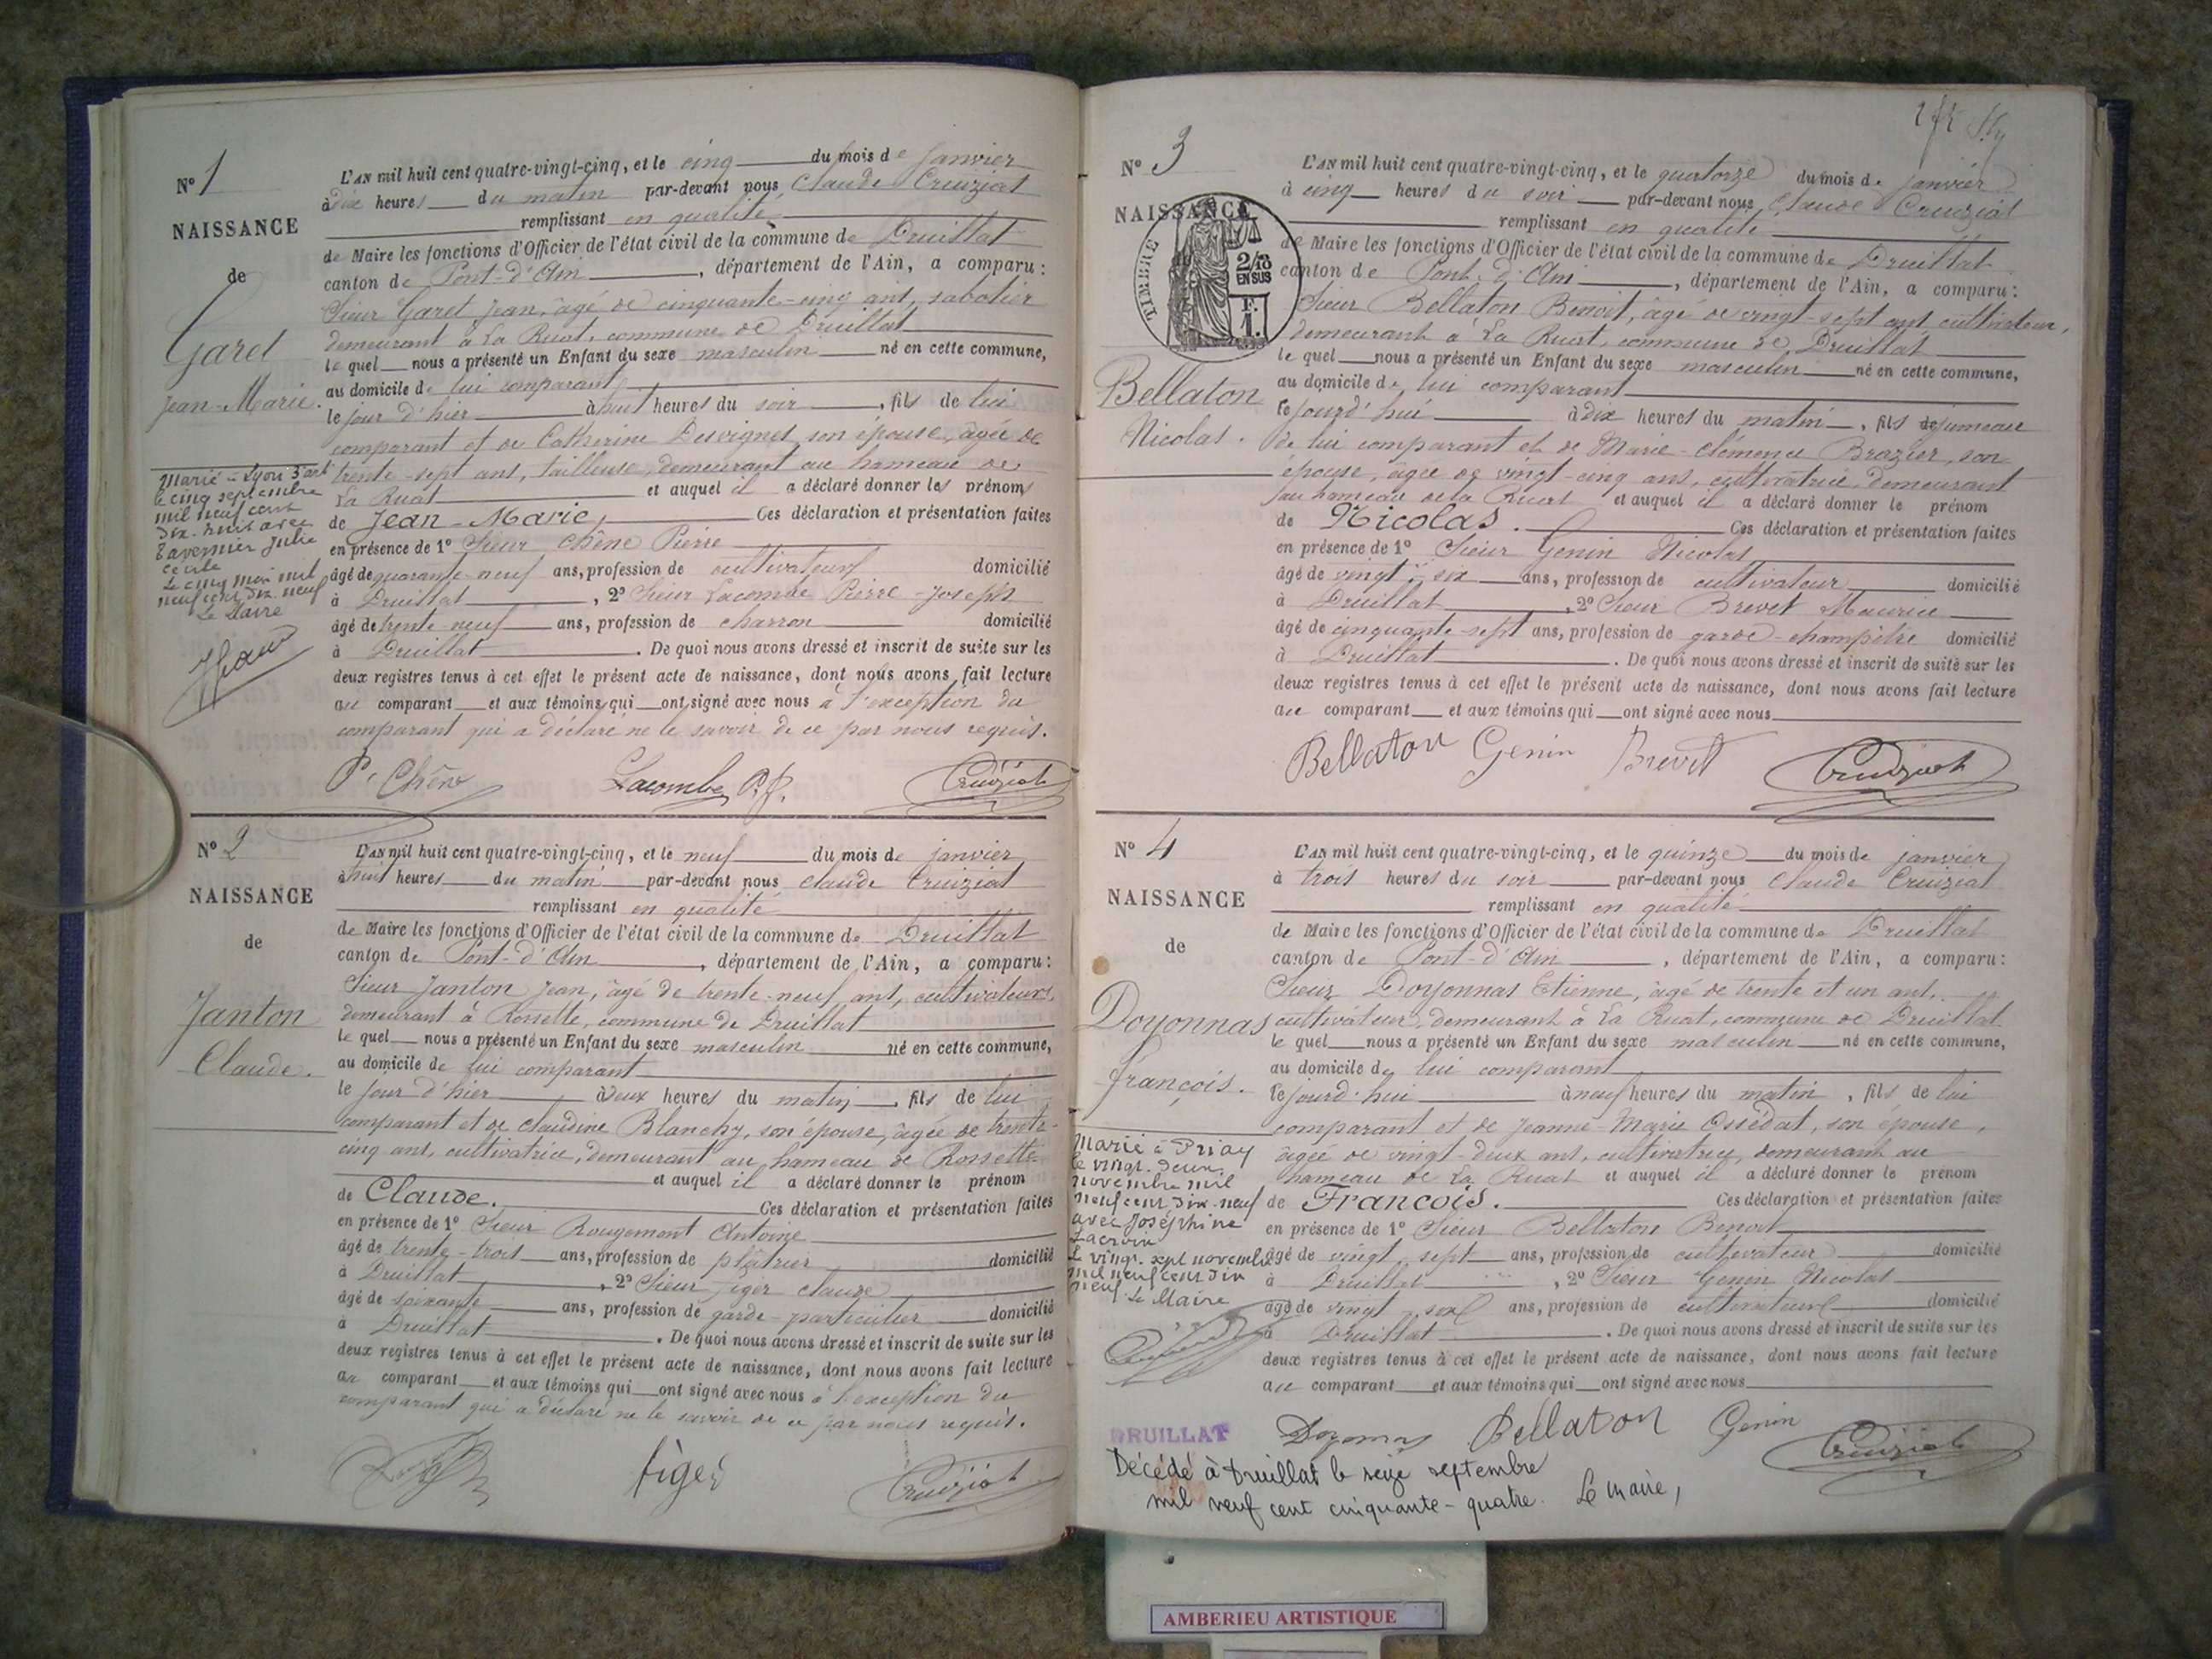 Nº 1
NAISSANCE
de
Garet
Jean-Marie.
Marié à Lyon 3e art
le cinq septembre
mil neuf cent
dix-huit avec
Tavernier Julie
Le cinq mil
neuf cent dix neuf
Le Maire
L'AN mil huit cent quatre-vingt-cinq, et le cinq du mois de janvier
à dix heures du matin par-devant nous Claude Cruiziat
remplissant en qualité
de Maire les fonctions d'Officier de l'état civil de la commune de Druillat
canton de Pont-d'Ain, département de l'Ain, a comparu :
Sieur Garet Jean, âgé de cinquante-cinq ans, sabotier
demeurant à La Ruat, commune de Druillat
le quel nous a présenté un Enfant du sexe masculin né en cette commune,
au domicile de lui comparant
le jour d'hier à huit heures du soir, fils de lui
comparant et de Catherine Desvignes son épouse, âgée de
trente-sept ans, tailleuse, demeurant au hameau de
La Ruat et auquel il a déclaré donner les prénoms
de Jean-Marie, Ces déclaration et présentation faites
en présence de 1º Sieur Chêne Pierre
âgé de quarante-neuf ans, profession de cultivateur domicilié
à Druillat, 2º Sieur Lacombe Pierre-Joseph
âgé de trente-neuf ans, profession de charron domicilié
à Druillat. De quoi nous avons dressé et inscrit de suite sur les
deux registres tenus à cet effet le présent acte de naissance, dont nous avons fait lecture
au comparant et aux témoins qui ont signé avec nous à l'exception du
comparant qui a déclaré ne le savoir de ce par nous requis.
P. Chêne Lacombe P.J. Cruiziat
Nº 2
NAISSANCE
de
Janton
Claude.
L'AN mil huit cent quatre-vingt-cinq, et le neuf du mois de janvier
à huit heures du matin par-devant nous Claude Cruiziat
remplissant en qualité
de Maire les fonctions d'Officier de l'état civil de la commune de Druillat
canton de Pont-d'Ain, département de l'Ain, a comparu :
Sieur Janton Jean, âgé de trente-neuf ans, cultivateur,
demeurant à Rossette, commune de Druillat
le quel nous a présenté un Enfant du sexe masculin né en cette commune,
au domicile de lui comparant
le jour d'hier à deux heures du matin, fils de lui
comparant et de Claudine Blanchy, son épouse, âgée de trente-
cinq ans, cultivatrice, demeurant au hameau de Rossette
et auquel il a déclaré donner le prénom
de Claude. Ces déclaration et présentation faites
en présence de 1º Sieur Rougemont Antoine
âgé de trente-trois ans, profession de plâtrier domicilié
à Druillat, 2º Sieur Figer Claude
âgé de soixante ans, profession de garde-particulier domicilié
à Druillat. De quoi nous avons dressé et inscrit de suite sur les
deux registres tenus à cet effet le présent acte de naissance, dont nous avons fait lecture
au comparant et aux témoins qui ont signé avec nous à l'exception du
comparant qui a déclaré ne le savoir de ce par nous requis.
figer Cruiziat
Nº 3
NAISSANCE
TIMBRE
2/10
EN SUS
F.
1.
Bellaton
Nicolas.
L'AN mil huit cent quatre-vingt-cinq, et le quatorze du mois de janvier
à cinq heures du soir par-devant nous Claude Cruiziat
remplissant en qualité
de Maire les fonctions d'Officier de l'état civil de la commune de Druillat
canton de Pont-d'Ain, département de l'Ain, a comparu :
Sieur Bellaton Benoit, âgé de vingt-sept ans, cultivateur,
demeurant à La Ruat, commune de Druillat
le quel nous a présenté un Enfant du sexe masculin né en cette commune,
au domicile de lui comparant
le jourd'hui à dix heures du matin, fils jumeau
de lui comparant et de Marie-Clémence Brazier, son
épouse, âgée de vingt-cinq ans, cultivatrice, demeurant
au hameau de la Ruat et auquel il a déclaré donner le prénom
de Nicolas. Ces déclaration et présentation faites
en présence de 1º Sieur Genin Nicolas
âgé de vingt-six ans, profession de cultivateur domicilié
à Druillat, 2º Sieur Brevet Maurice
âgé de cinquante-sept ans, profession de garde-champêtre domicilié
à Druillat. De quoi nous avons dressé et inscrit de suite sur les
deux registres tenus à cet effet le présent acte de naissance, dont nous avons fait lecture
au comparant et aux témoins qui ont signé avec nous
Bellaton Genin Brevet Cruiziat
Nº 4
NAISSANCE
de
Doyonnas
François.
Marié à Priay
le vingt-deux
novembre mil
neuf cent dix-neuf
avec Joséphine
Lacroix
Le vingt sept novembre
mil neuf cent dix
neuf. Le Maire
L'AN mil huit cent quatre-vingt-cinq, et le quinze du mois de janvier
à trois heures du soir par-devant nous Claude Cruiziat
remplissant en qualité
de Maire les fonctions d'Officier de l'état civil de la commune de Druillat
canton de Pont-d'Ain, département de l'Ain, a comparu :
Sieur Doyonnas Etienne, âgé de trente et un ans,
cultivateur, demeurant à La Ruat, commune de Druillat
le quel nous a présenté un Enfant du sexe masculin né en cette commune,
au domicile de lui comparant
le jourd'hui à neuf heures du matin, fils de lui
comparant et de Jeanne-Marie Ossédat, son épouse,
âgée de vingt-deux ans, cultivatrice, demeurant au
hameau de La Ruat et auquel il a déclaré donner le prénom
de François. Ces déclaration et présentation faites
en présence de 1º Sieur Bellaton Benoit
âgé de vingt-sept ans, profession de cultivateur domicilié
à Druillat, 2º Sieur Genin Nicolas
âgé de vingt-six ans, profession de cultivateur domicilié
à Druillat. De quoi nous avons dressé et inscrit de suite sur les
deux registres tenus à cet effet le présent acte de naissance, dont nous avons fait lecture
au comparant et aux témoins qui ont signé avec nous
Doyonnas Bellaton Genin Cruiziat
DRUILLAT
Décédé à Druillat le seize septembre
mil neuf cent cinquante-quatre. Le maire,
AMBERIEU ARTISTIQUE